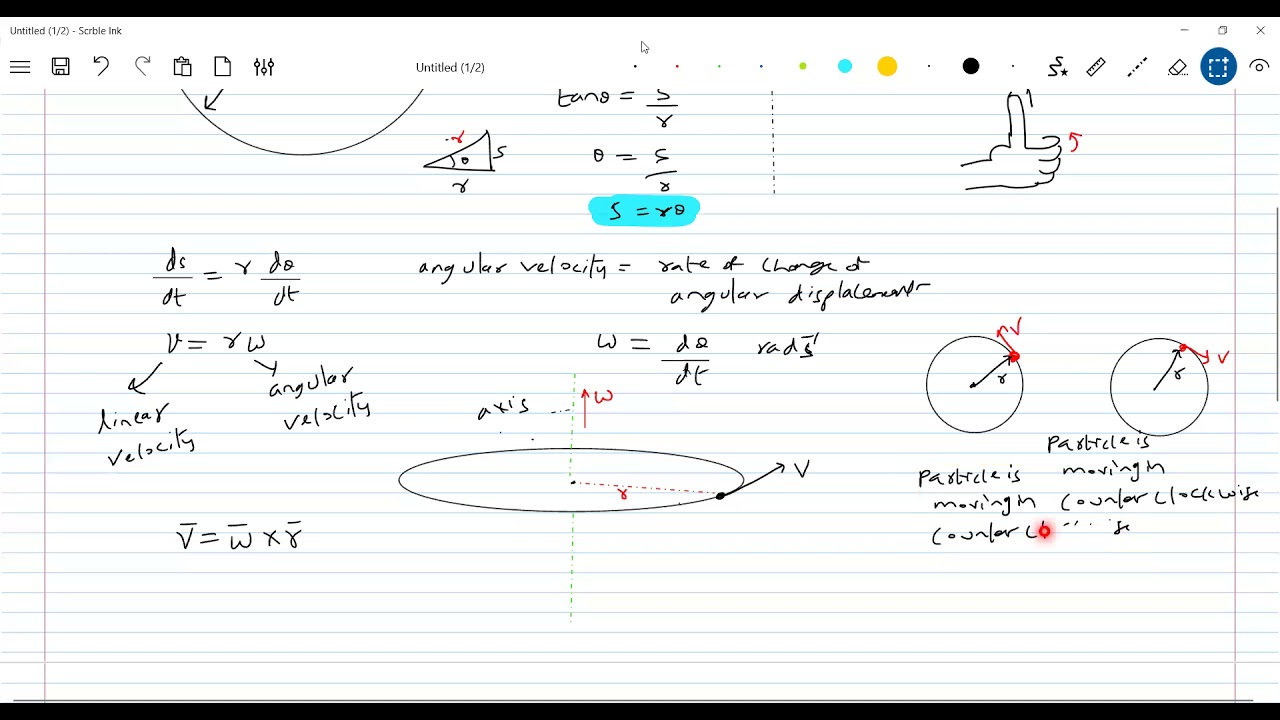 Untitled (1/2) - Scrble Ink
Untitled (1/2)
tanθ = s/r
r
θ
s
r
θ = s/r
s = rθ
ds/dt = r dθ/dt
angular velocity = rate of change of
angular displacement
v = rω
ω = dθ/dt rad s⁻¹
linear
velocity
angular
velocity
axis
ω
r
V
V
r
V
r
Particle is
moving in
counter clockwise
Particle is
moving in
counter cl
ise
v̄ = ω̄ × r̄